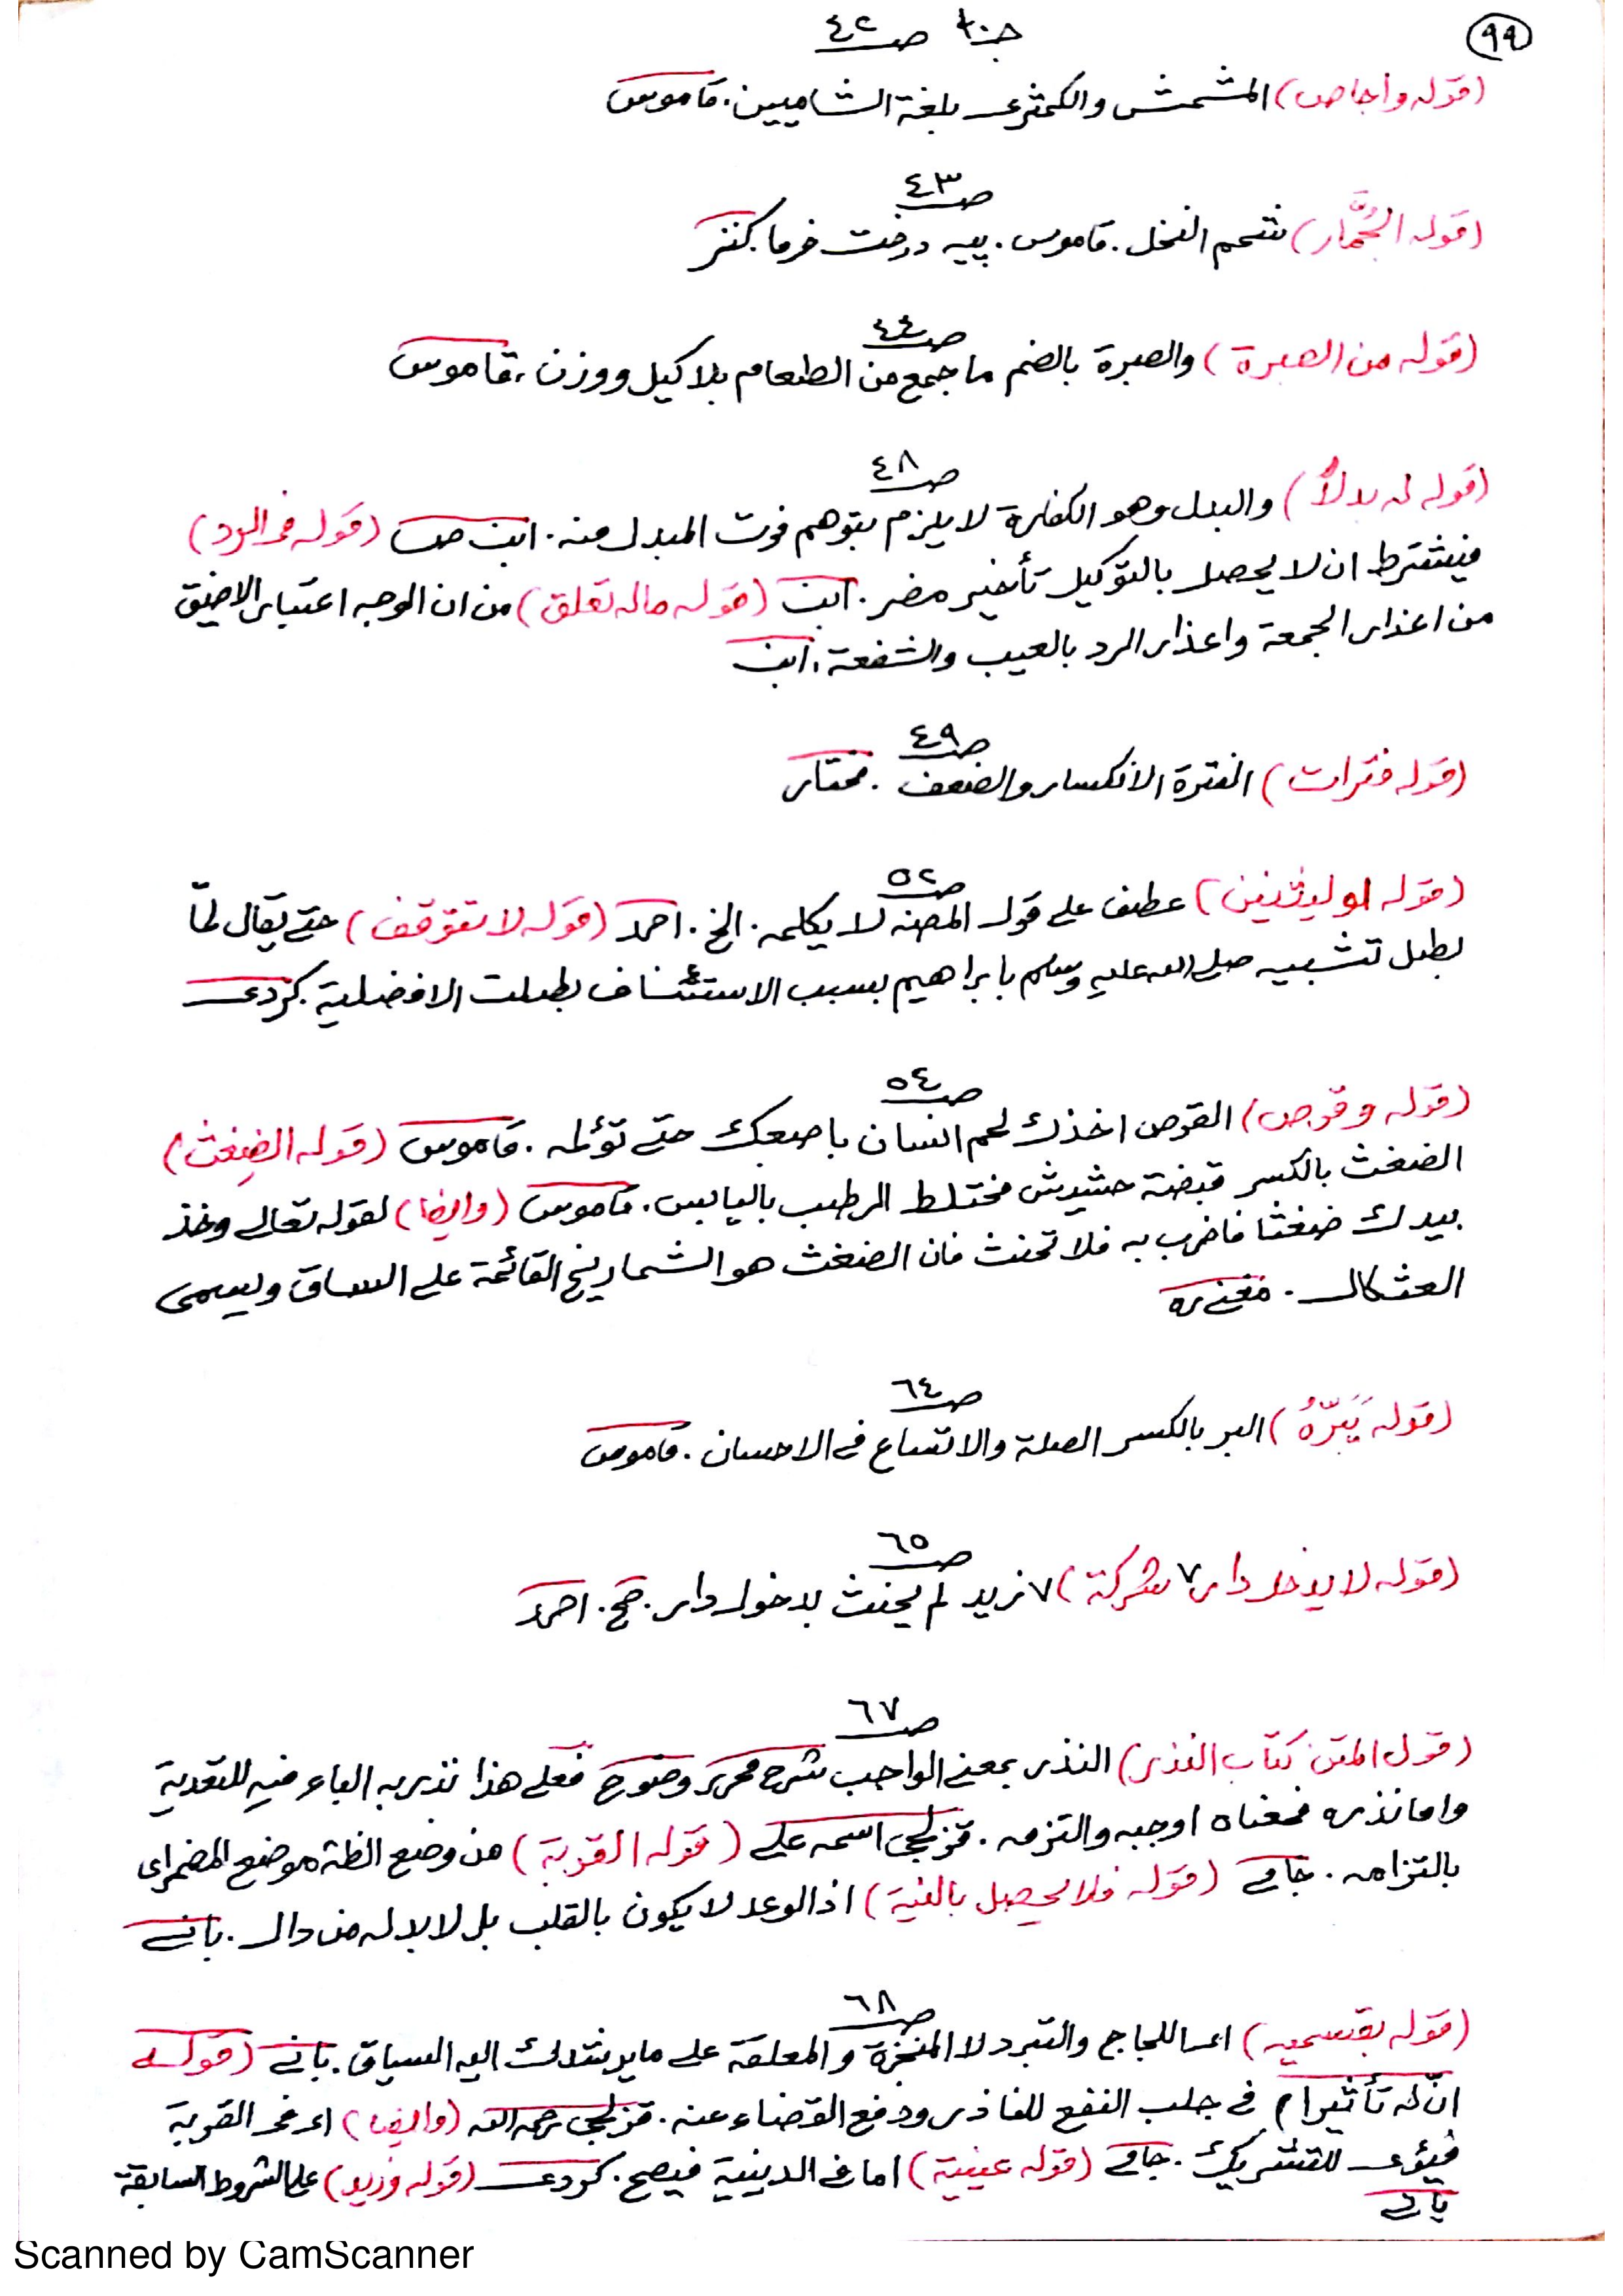 ٩٩
جـ١٠ صـ٤٢
(قوله واجاص) المشمش والكمثرى بلغة الشاميين. قاموس
صـ٤٣
(قوله الجُمَّار) شحم النخل. قاموس. پيه درخت خرما. كنز
صـ٤٤
(قوله من الصبرة) والصبرة بالضم ما جمع من الطعام بلا كيل ووزن، قاموس
صـ٤٨
(قوله له بدلاً) والبدل وهو الكفارة لا يلزم بتوهم فوت المبدل منه. ابن (قوله في الرد)
فيشترط ان لا يحصل بالتوكيل تأخير مضر. ابن (قوله ماله تعلق) من ان الوجه اعتبار الاضيق
من اعذار الجمعة واعذار الرد بالعيب والشفعة. ابن
صـ٤٩
(قوله فترات) الفترة الانكسار والضعف. مختار
صـ٥٢
(قوله او ليثنين) عطف على قول المصنف لا يكلمه. الخ. احمد (قوله لا تتوقف) حتى يقال لمّا
بطل تشبيه صلى الله عليه وسلم بابراهيم بسبب الاستئناف بطلت الافضلية. كردى
صـ٥٤
(قوله وقرص) القرص اخذك لحم انسان باصبعك حتى تؤلمه. قاموس (قوله الضِغث)
الضغث بالكسر قبضة حشيش مختلط الرطب باليابس. قاموس (وايضا) لقوله تعالى وخذ
بيدك ضغثا فاضرب به فلا تحنث فان الضغث هو الشماريخ القائمة على الساق ويسمى
العثكال. مغنى
صـ٦٤
(قوله يَبَرّهُ) البر بالكسر الصلة والاتساع في الاحسان. قاموس
صـ٦٥
(قوله لا يدخل دار ٧ شركة) ٧ زيد لم يحنث بدخول دار. صح. احمد
صـ٦٧
(قول المتن كتاب النذر) النذر بمعنى الواجب شرح محرر وضوح فعلى هذا نذر به الباء فيه للتعدية
واما نذره فمعناه اوجبه والتزمه. قزلجى اسمه على (قوله القربة) من وضع الظاهر موضع المضمر اى
بالتزامه. جامى (قوله فلا يحصل بالنية) اذ الوعد لا يكون بالقلب بل لا بد له من دال. بانى
صـ٦٨
(قوله بقسميه) اى اللجاج والتبرر لا المنجزة والمعلقة على ما يرشدك اليه السياق. بانى (قوله
انّ له تأثيرا) في جلب النفع للناذر ودفع القضاء عنه. قزلجى رحمه الله (وايضا) اى في القربة
فيؤى للتشريك. جامى (قوله عينية) اما في الدينية فيصح. كردى (قوله وزيد) على الشروط السابقة
بانى
Scanned by CamScanner